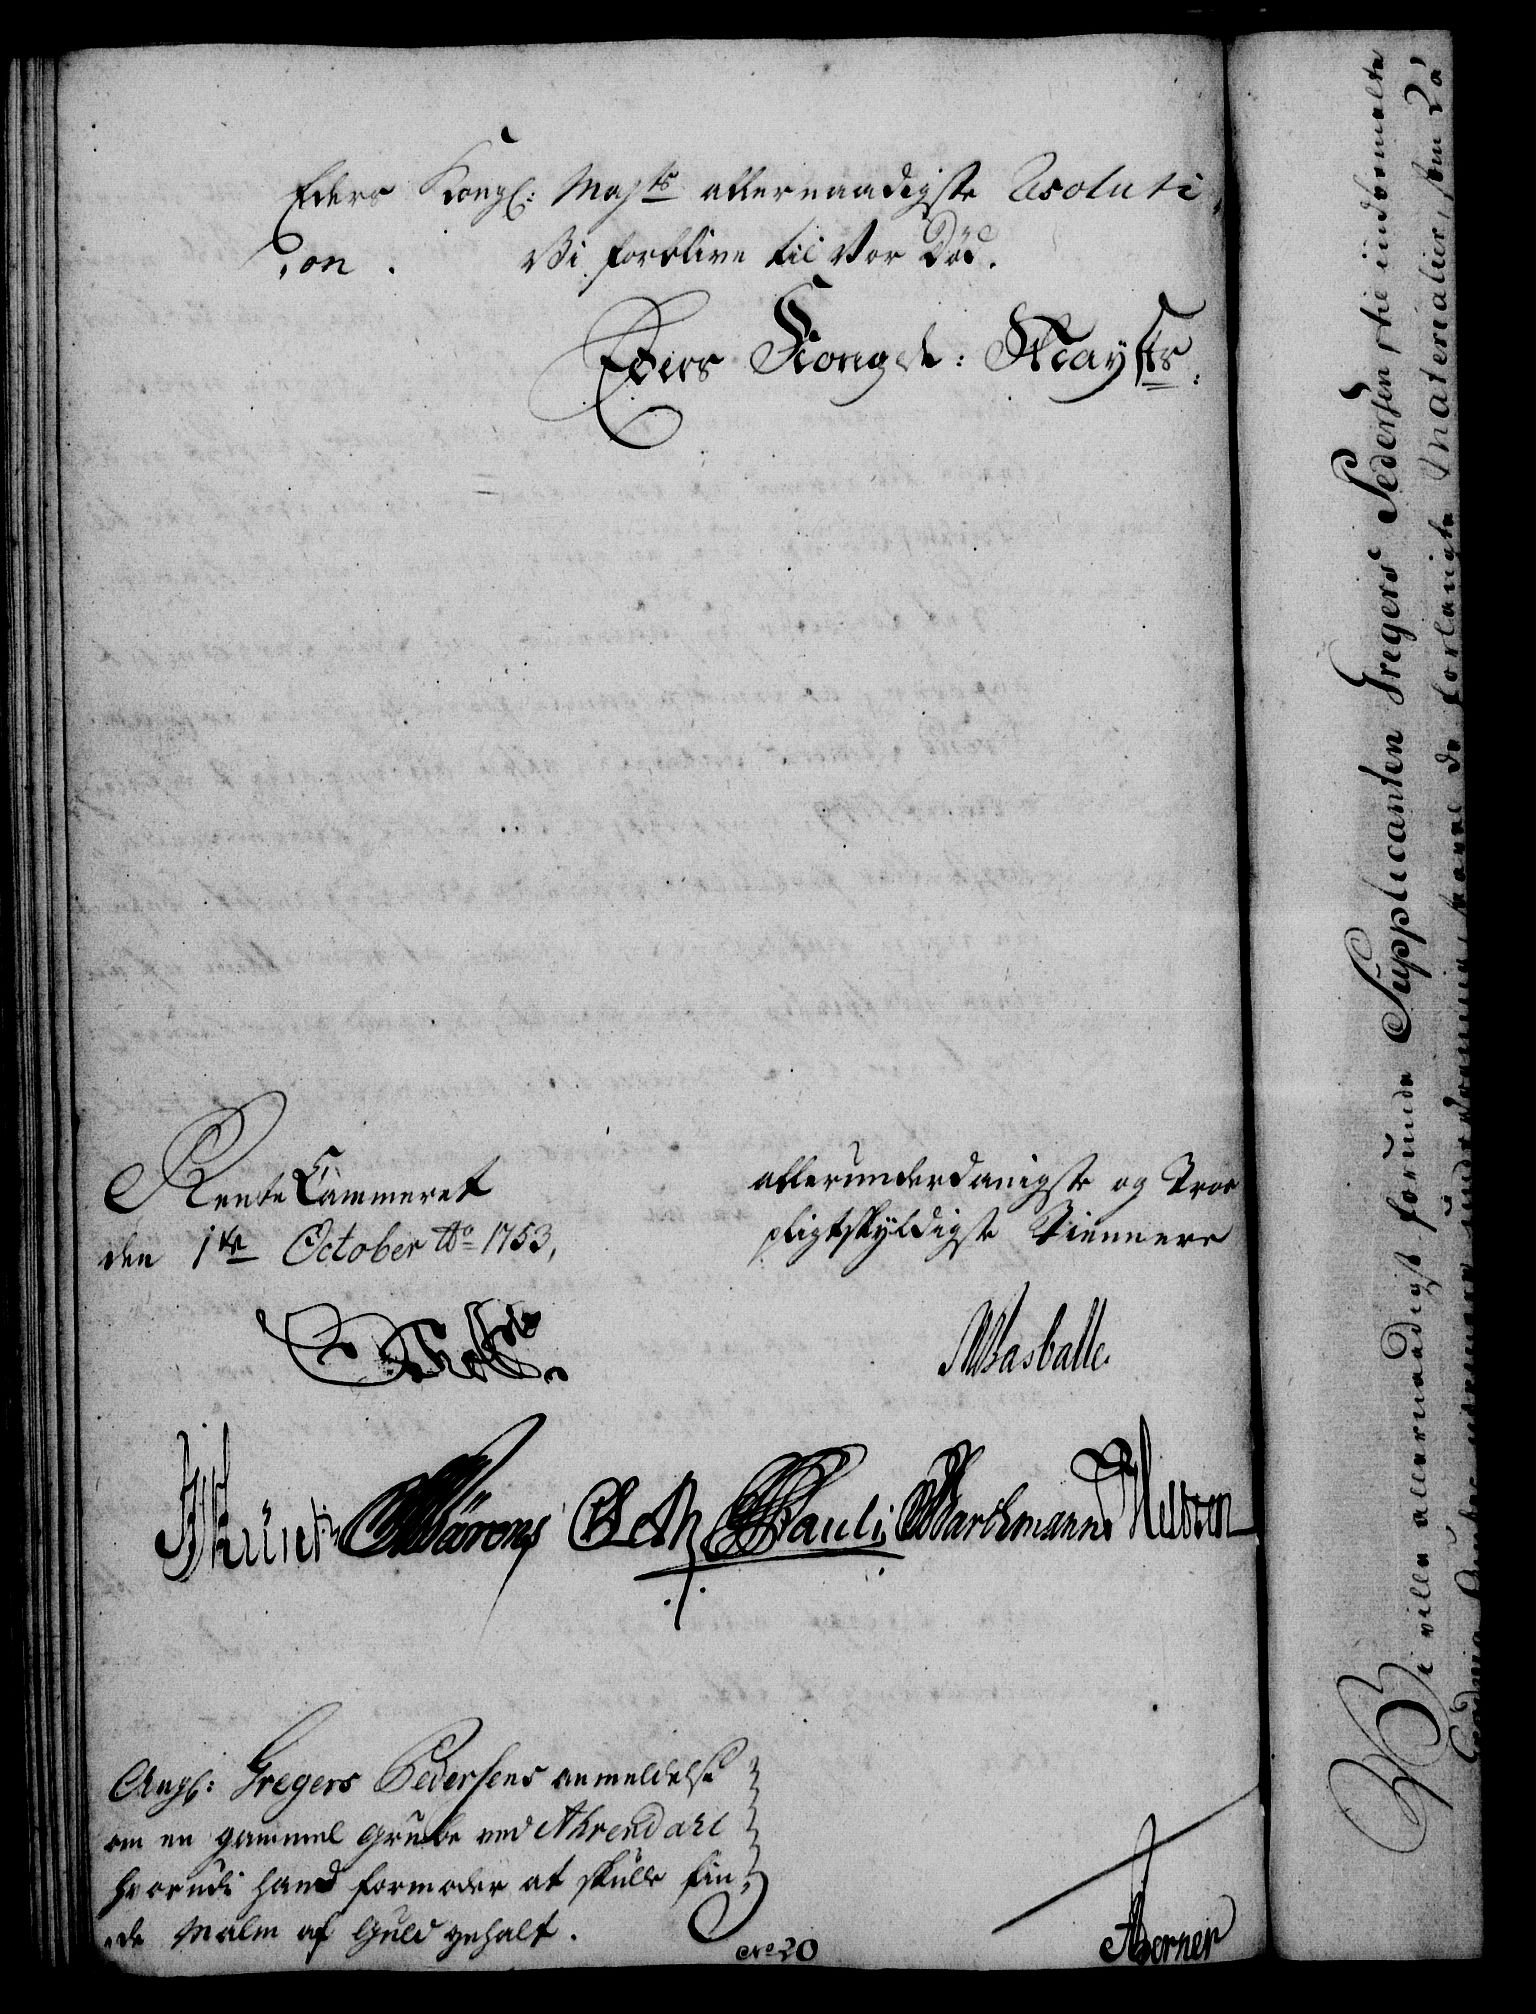 Eders Kongl: Maj.ts allernaadigste Resoluti,
,on. Vi forblive til Vor Död.
Eders Kongel: Mayts:
RenteCammeret
den 1te October Ao 1753,
allerunderdanigste og Troe
pligtskÿldigste Tiennere
Wasballe
Pauli Barthmann
Angl: Gregers Pedersens anmeldelse
om en gammel Grube ved Ahrendahl
hvorudi hand formoder at skulle fin,
,de Malm af Guld gehalt.
No 20
Berner
Vi ville allernaadigst forunde Supplicanten Gregers Pedersen, til indbemelte
de forlangte Materialier, som Da